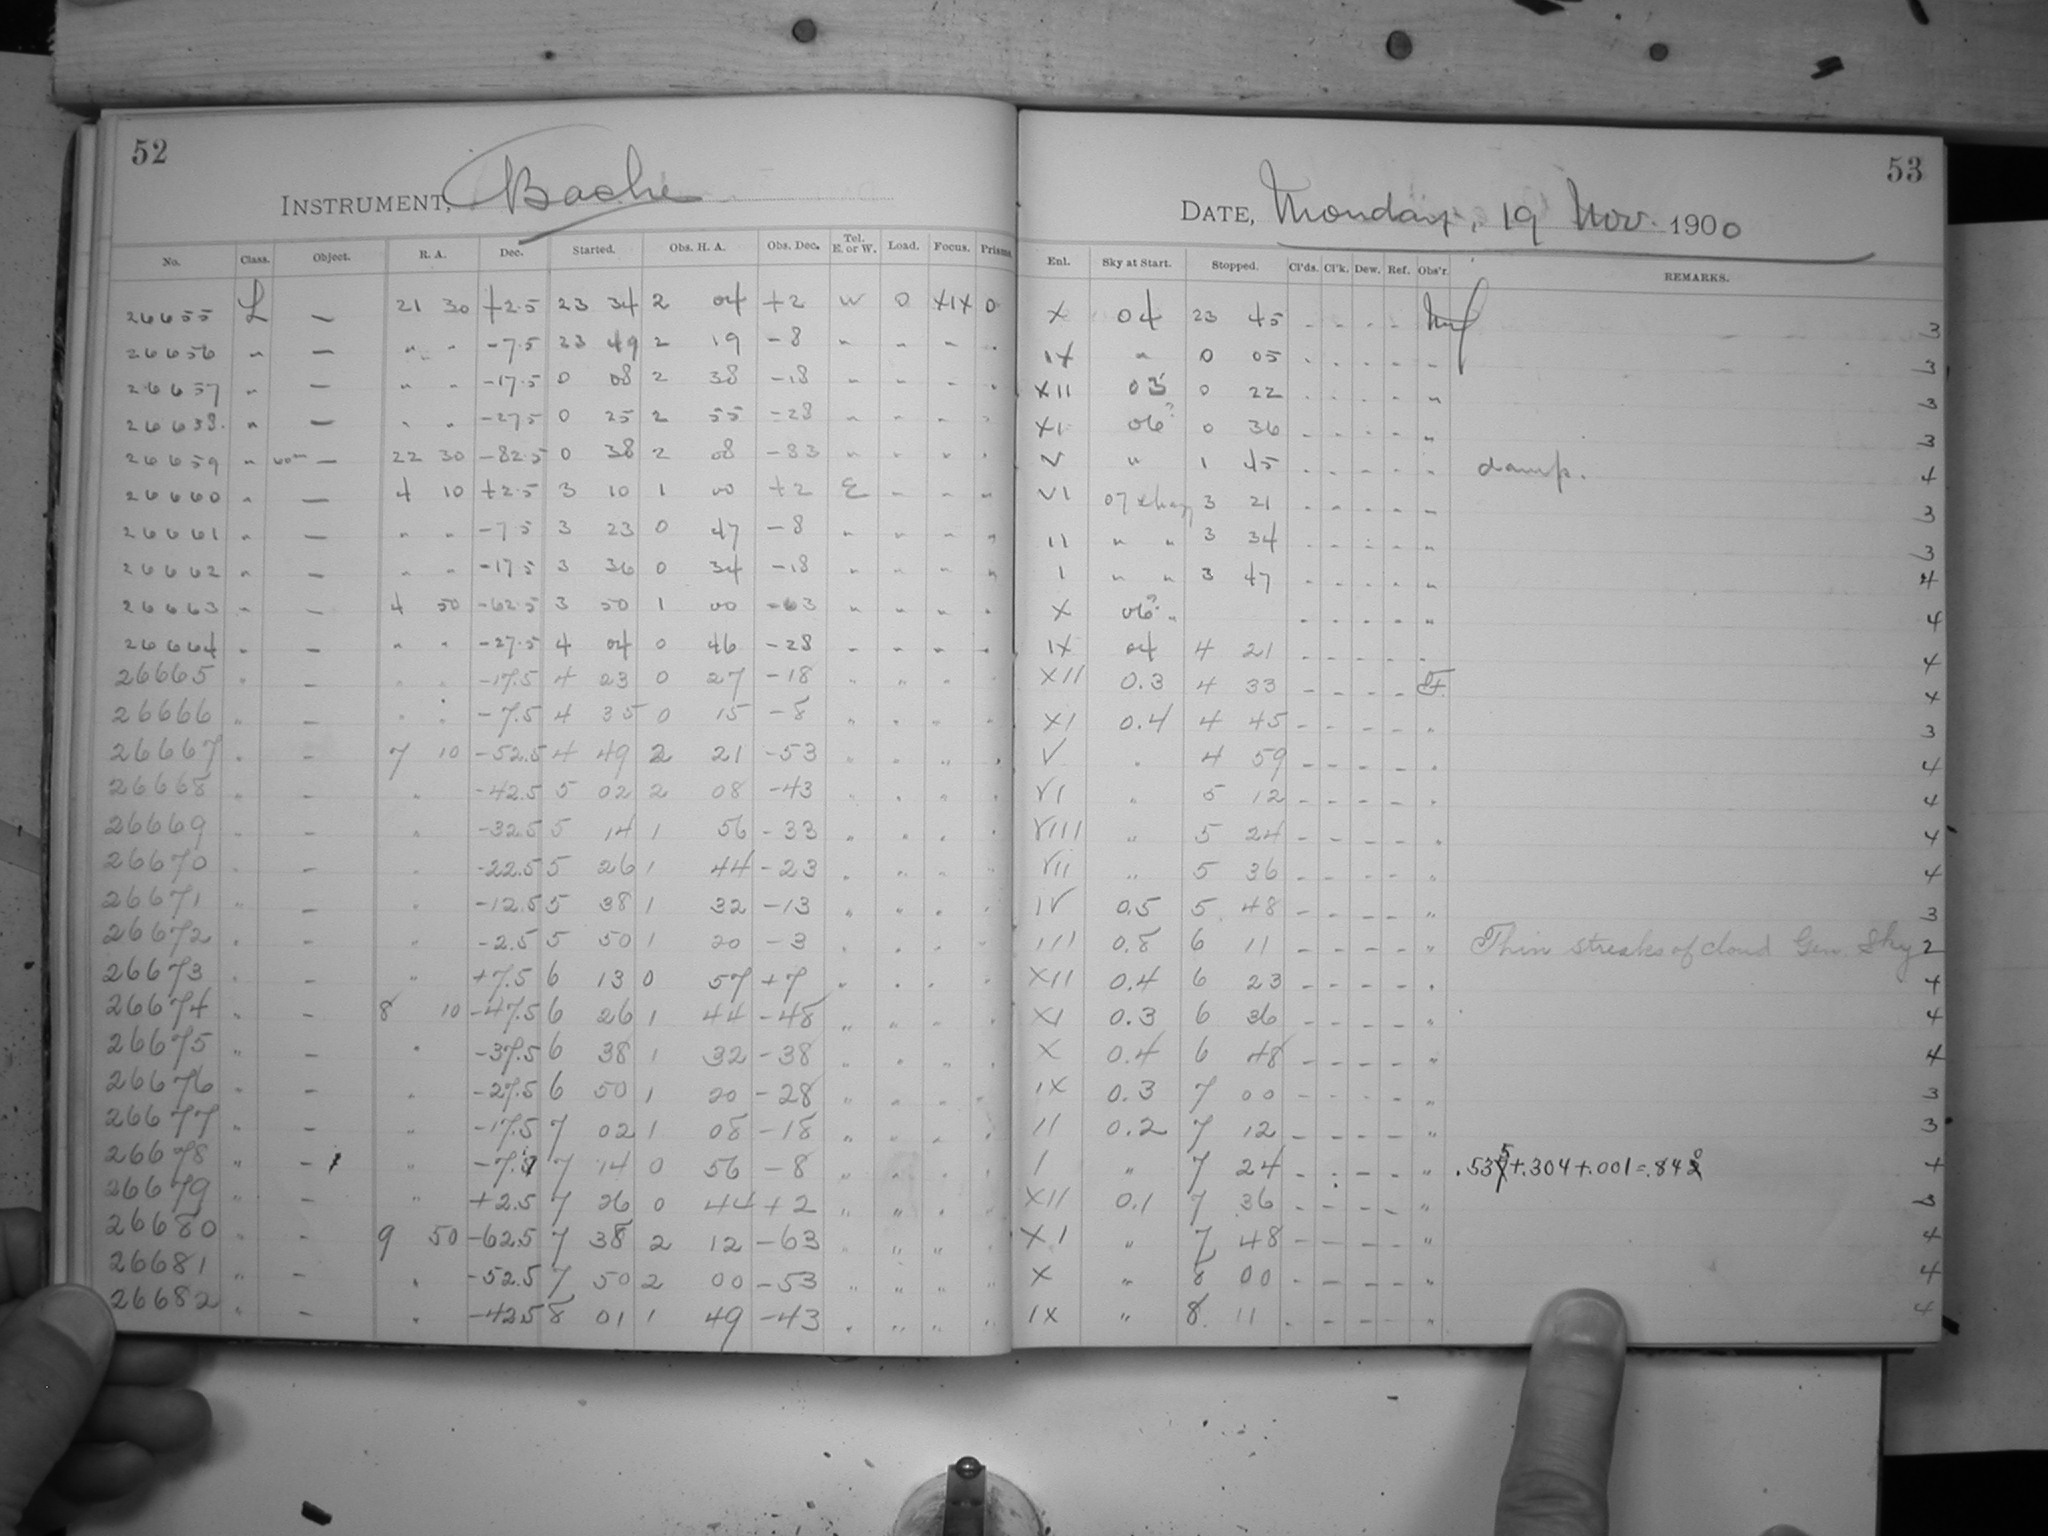 52
INSTRUMENT, Bache
No. Class. Object. R. A. Dec. Started. Obs. H. A. Obs. Dec. Tel. E. or W. Load. Focus. Prisms.
26655 L — 21 30 +2.5 23 34 2 04 +2 W 0 XIX 0
26656 " — " " -7.5 23 49 2 19 -8 " " " "
26657 " — " " -17.5 0 08 2 38 -18 " " " "
26658. " — " " -27.5 0 25 2 55 -28 " " " "
26659 " 60m — 22 30 -82.5 0 38 2 08 -83 " " " "
26660 " — 4 10 +2.5 3 10 1 00 +2 E " " "
26661 " — " " -7.5 3 23 0 47 -8 " " " "
26662 " — " " -17.5 3 36 0 34 -18 " " " "
26663 " — 4 50 -62.5 3 50 1 00 -63 " " " "
26664 " — " " -27.5 4 04 0 46 -28 " " " "
26665 " — " " -17.5 4 23 0 27 -18 " " " "
26666 " — " " -7.5 4 35 0 15 -8 " " " "
26667 " — 7 10 -52.5 4 49 2 21 -53 " " " "
26668 " — " -42.5 5 02 2 08 -43 " " " "
26669 " — " -32.5 5 14 1 56 -33 " " " "
26670 " — " -22.5 5 26 1 44 -23 " " " "
26671 " — " -12.5 5 38 1 32 -13 " " " "
26672 " — " -2.5 5 50 1 20 -3 " " " "
26673 " — " +7.5 6 13 0 57 +7 " " " "
26674 " — 8 10 -47.5 6 26 1 44 -48 " " " "
26675 " — " -37.5 6 38 1 32 -38 " " " "
26676 " — " -27.5 6 50 1 20 -28 " " " "
26677 " — " -17.5 7 02 1 08 -18 " " " "
26678 " — " -7.5 7 14 0 56 -8 " " " "
26679 " — " +2.5 7 26 0 44 +2 " " " "
26680 " — 9 50 -62.5 7 38 2 12 -63 " " " "
26681 " — " -52.5 7 50 2 00 -53 " " " "
26682 " — " -42.5 8 01 1 49 -43 " " " "
53
DATE, Monday, 19 Nov. 1900
Enl. Sky at Start. Stopped. Cl'ds. Cl'k. Dew. Ref. Obs'r. REMARKS.
X 04 23 45 - - - - 3
IX " 0 05 - - - - " 3
XII 03 0 22 - - - - " 3
XI 06? 0 36 - - - - " 3
V " 1 45 - - - - " damp. 4
VI 07 3 21 - - - - " 3
II " " 3 34 - - - - " 3
I " " 3 47 - - - - " 4
X 06? " - - - - " 4
IX 04 4 21 - - - - " 4
XII 0.3 4 33 - - - - F. 4
XI 0.4 4 45 - - - - " 3
V " 4 59 - - - - " 4
VI " 5 12 - - - - " 4
VIII " 5 24 - - - - " 4
VII " 5 36 - - - - " 4
IV 0.5 5 48 - - - - " 3
III 0.8 6 11 - - - - " Thin streaks of cloud Gen. Sky 2
XII 0.4 6 23 - - - - " 4
XI 0.3 6 36 - - - - " 4
X 0.4 6 48 - - - - " 4
IX 0.3 7 00 - - - - " 3
II 0.2 7 12 - - - - " 3
I " 7 24 - - - - " .535+.304+.001=.840 4
XII 0.1 7 36 - - - - " 3
XI " 7 48 - - - - " 4
X " 8 00 - - - - " 4
IX " 8 11 - - - - " 4